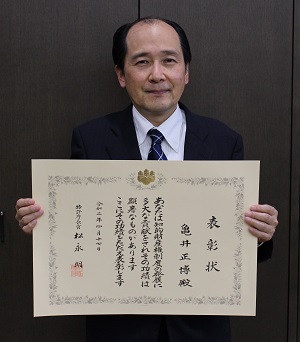 表彰状
亀井正博殿
あなたは知的財産権制度の発展に
多大な貢献をされその功績は
顕著なものがあります
ここにその功績をたたえ表彰します
令和二年四月十七日
特許庁長官 松永 明